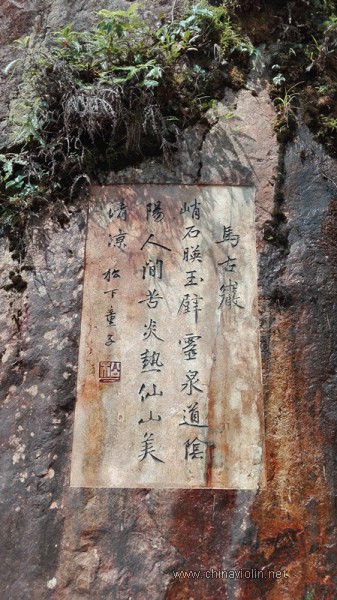 馬古巖
峭石暎玉壁靈泉道陰
陽人間苦炎熱仙山美
清凉 松下童子
www.chinaviolin.net